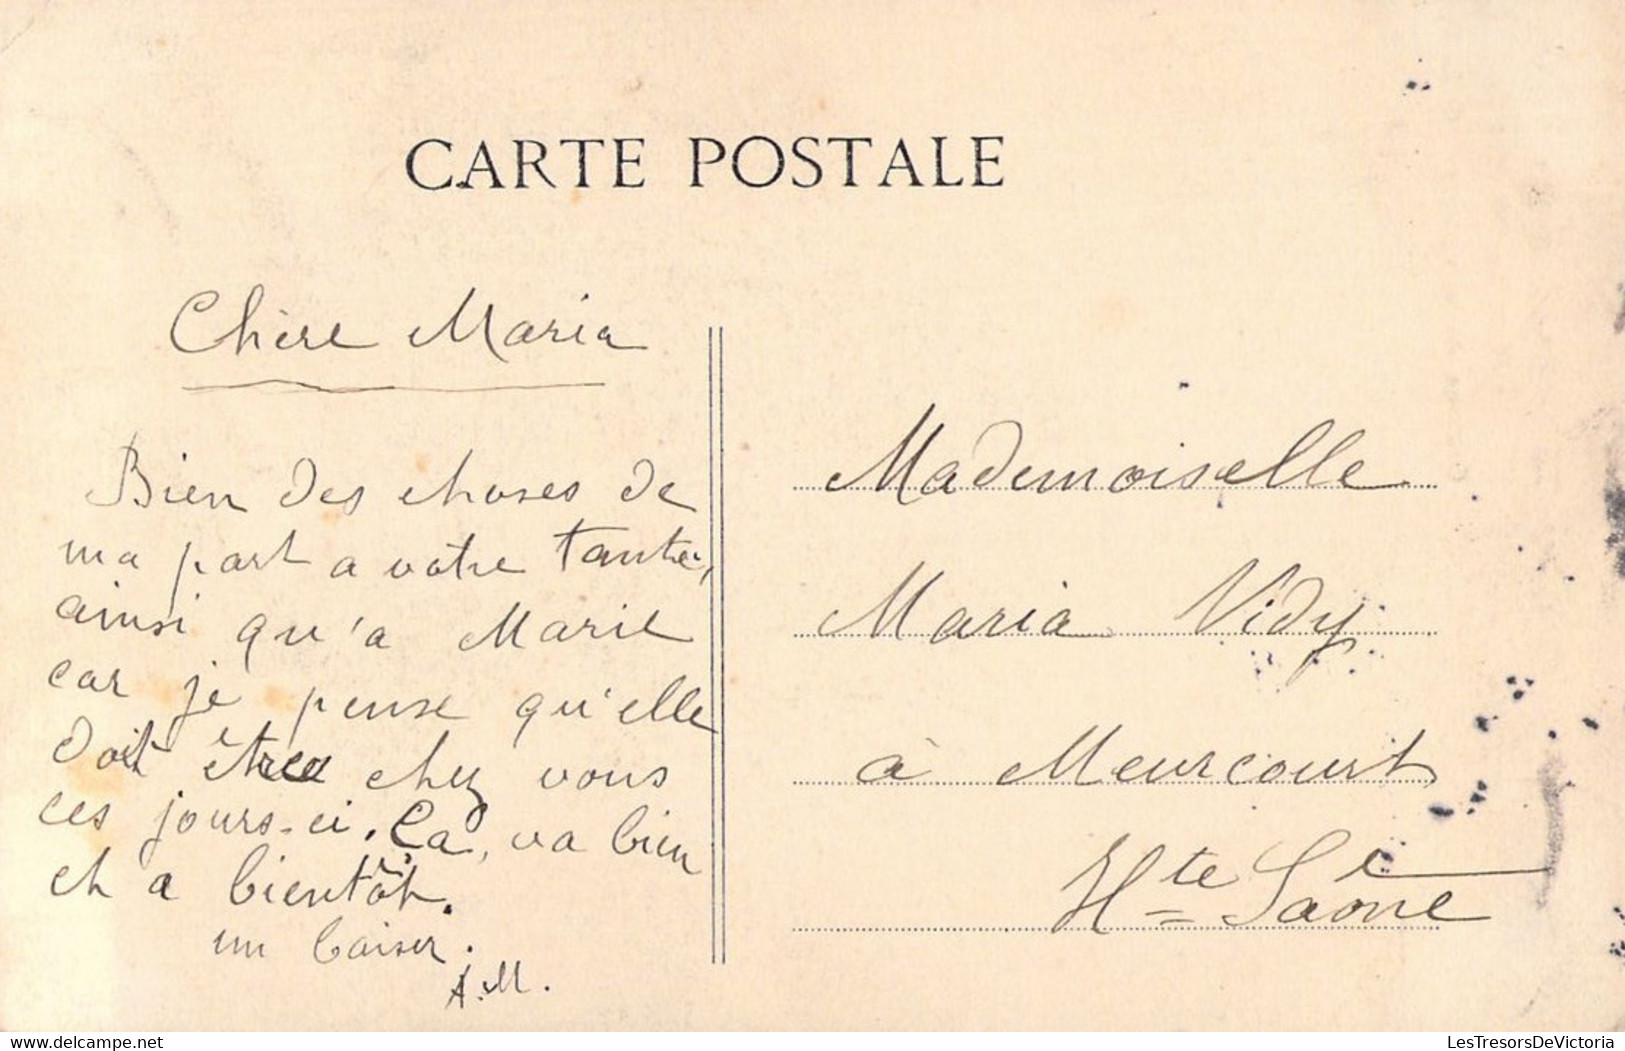 CARTE POSTALE
Chère Maria
Bien des choses de
ma part a votre tante,
ainsi qu'a Marie
car je pense qu'elle
doit être chez vous
ces jours-ci. Ça, va bien
et a bientôt.
un baiser.
A.M.
Mademoiselle
Maria Vidy
à Meurcourt
Hte Saône
delcampe.net
LesTresorsDeVictoria